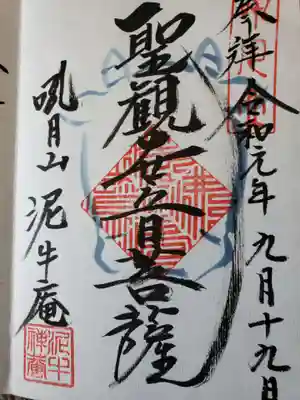 奉拝 令和元年 九月十九日
聖観世音菩薩
吼月山 泥牛庵